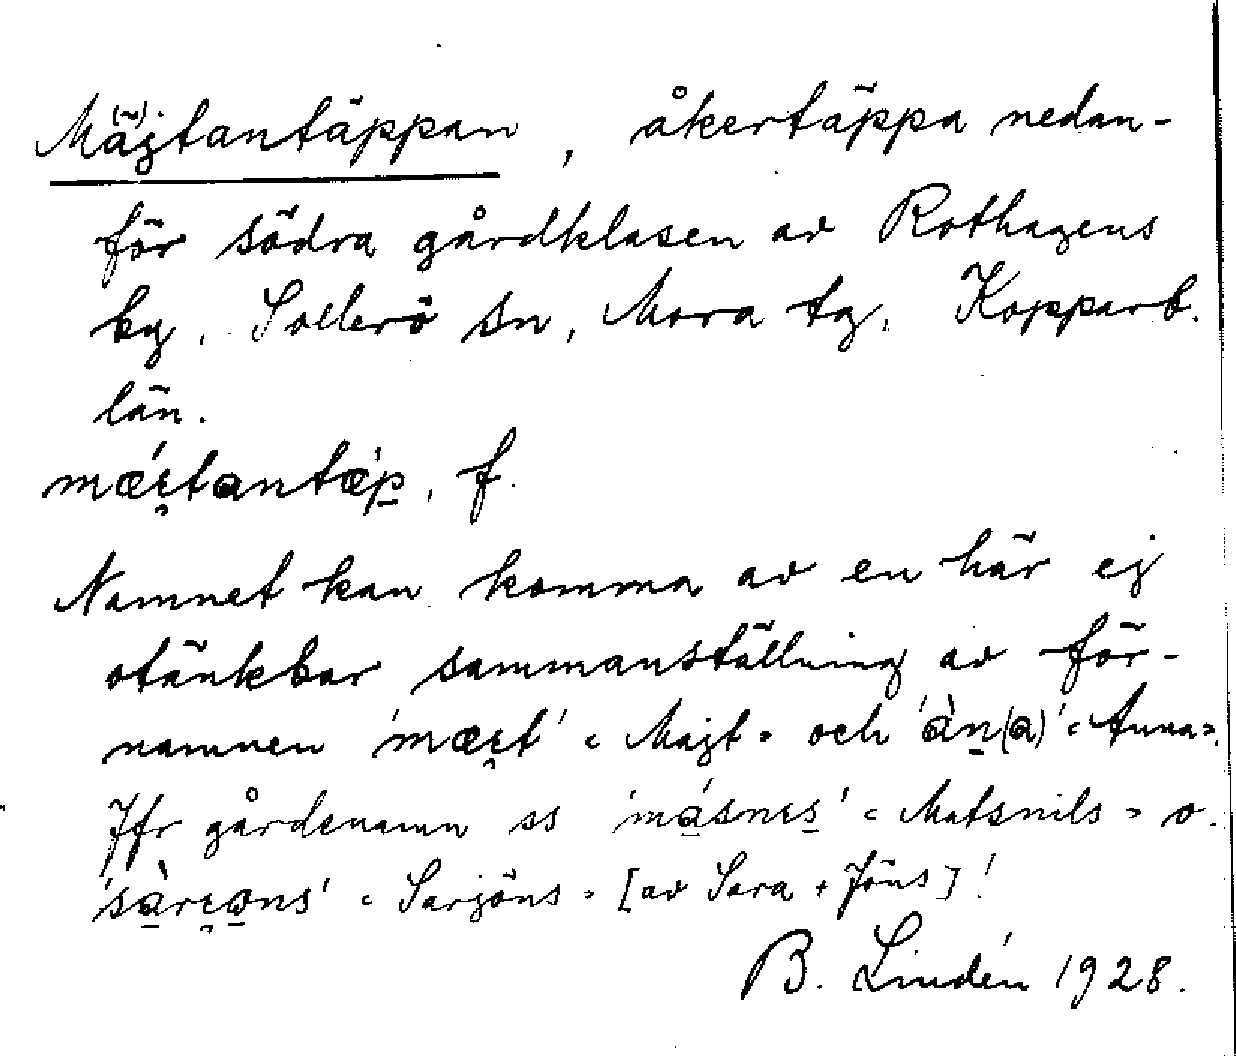 Mäjtantäppan, åkertäppa nedan-
för södra gårdklasen av Rothagens
by, Sollerö sn, Mora tg, Kopparb.
län.
mǽi̯tantæ̀p̠, f.
Namnet kan komma av en här ej
otänkbar sammanställning av för-
namnen 'mæi̯t' "Majt" och 'àn̠(a)' "Anna".
Jfr gårdsnamn ss 'má̠snɪs̠' "Matsnils" o.
'sà̠ri̯o̠ns' "Sarjöns" [av Sara + Jöns]!
B. Lindén 1928.